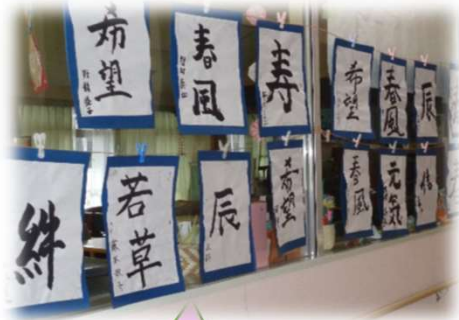 希望
春風
寿
希望
春風
辰
絆
若草
辰
希望
春風
元気